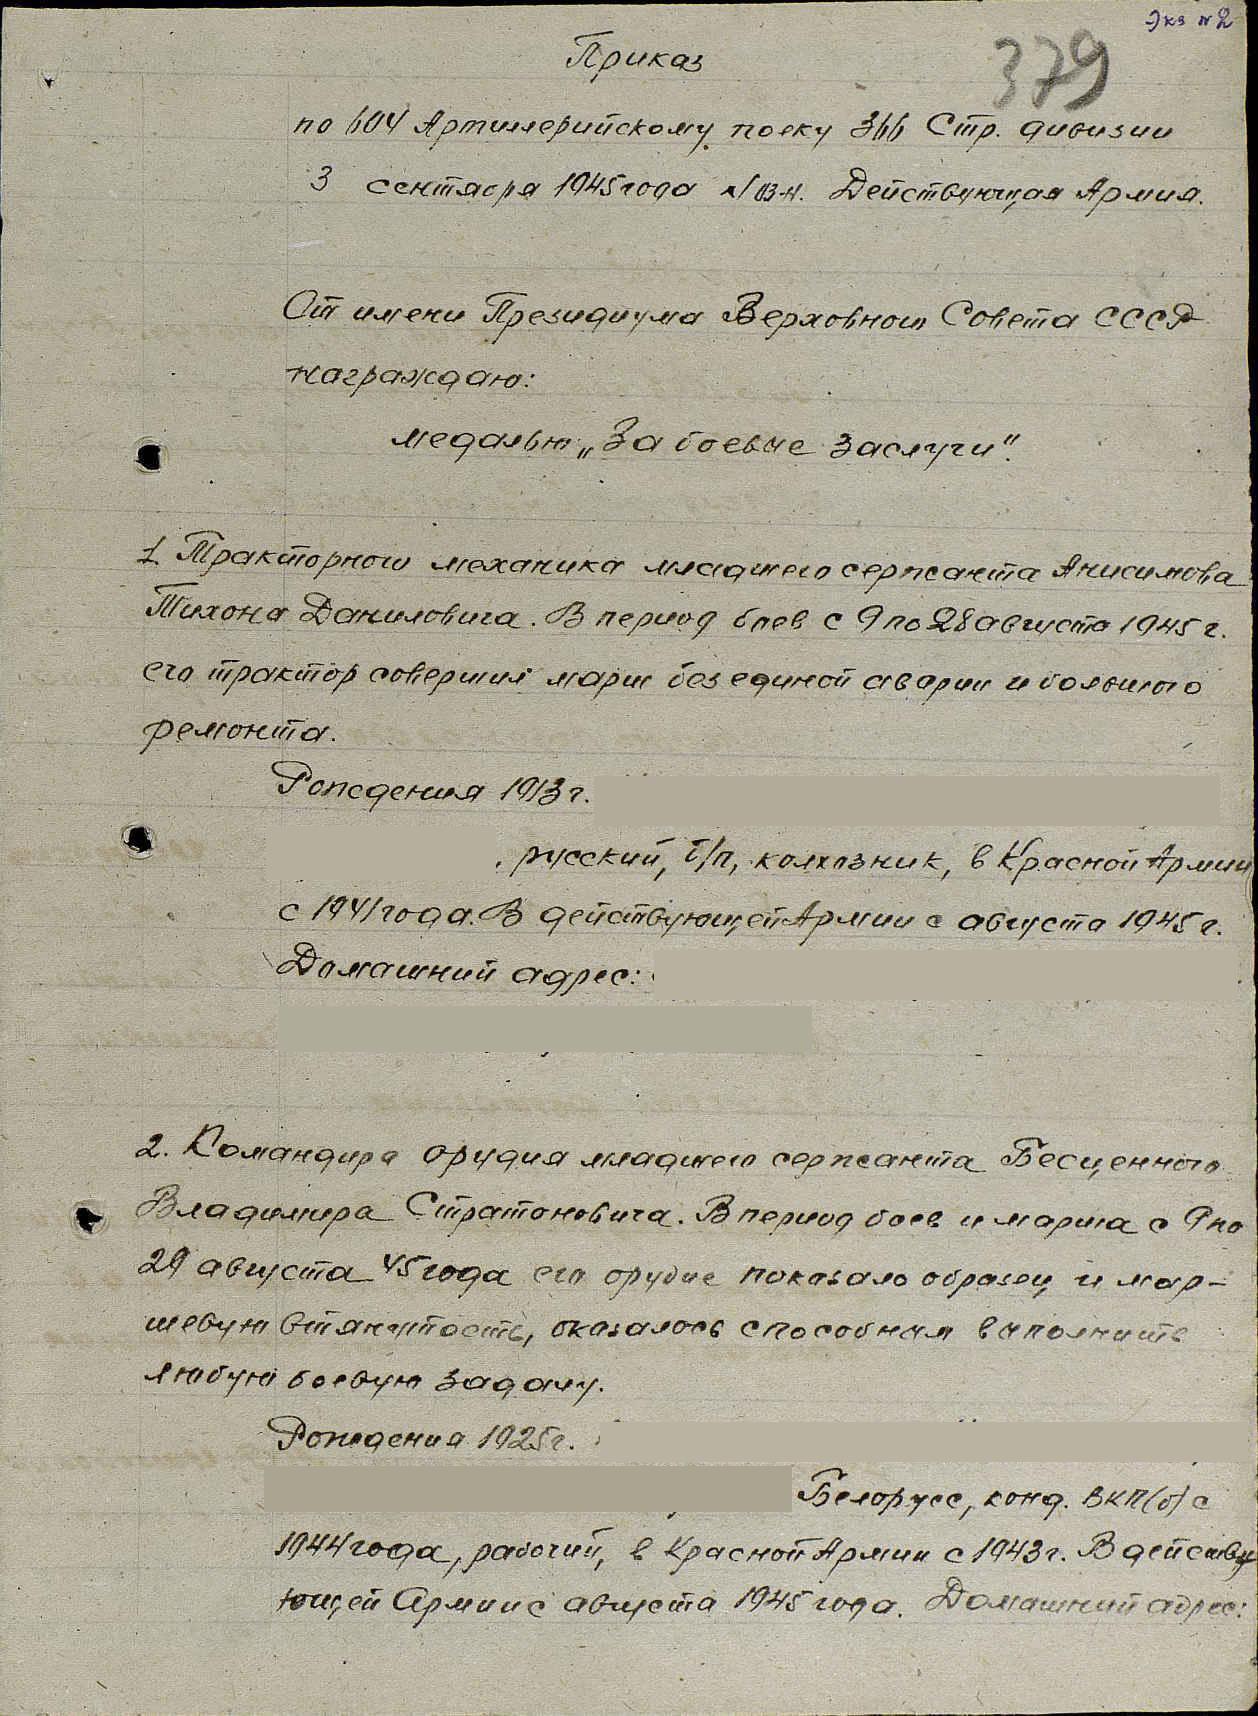 Экз №2
379
Приказ
по 604 Артиллерийскому полку 366 Стр. дивизии
3 сентября 1945 года Действующая Армия.
От имени Президиума Верховного Совета СССР
награждаю:
медалью „За боевые заслуги".
1. Тракторного механика младшего сержанта Анисимова
Тихона Даниловича. В период боев с 9 по 28 августа 1945 г.
его трактор совершил марш без единой аварии и большого
ремонта.
Рождения 1913 г.
русский, б/п, колхозник, в Красной Армии
с 1941 года. В действующей Армии с августа 1945 г.
Домашний адрес:
2. Командира орудия младшего сержанта Бесценного
Владимира Стратоновича. В период боев и марша с 9 по
29 августа 45 года его орудие показало образец и мар-
шевую втянутость, оказалось способным выполнить
любую боевую задачу.
Рождения 1925 г.
Белорусс, канд. ВКП(б) с
1944 года, рабочий, в Красной Армии с 1943 г. В действу
ющей Армии с августа 1945 года. Домашний адрес: